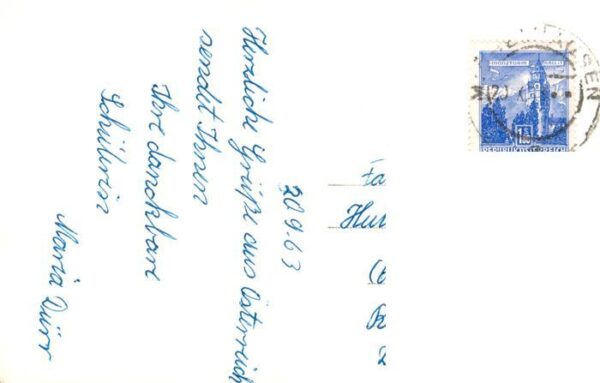 20 9.63
Herzliche Grüße aus Österreich
sendet Ihnen
Ihre dankbare
Schülerin
Maria Dürr
Fa
1.50
REPUBLIK ÖSTERREICH